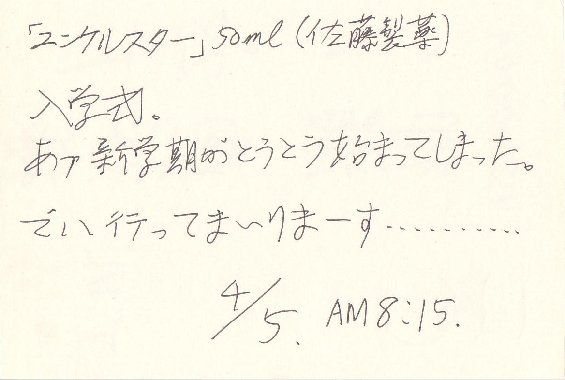 「ユンケルスター」50ml（佐藤製薬）
入学式。
あァ新学期がとうとう始まってしまった。
でハ行ってまいりまーす..........
4/5. AM8:15.